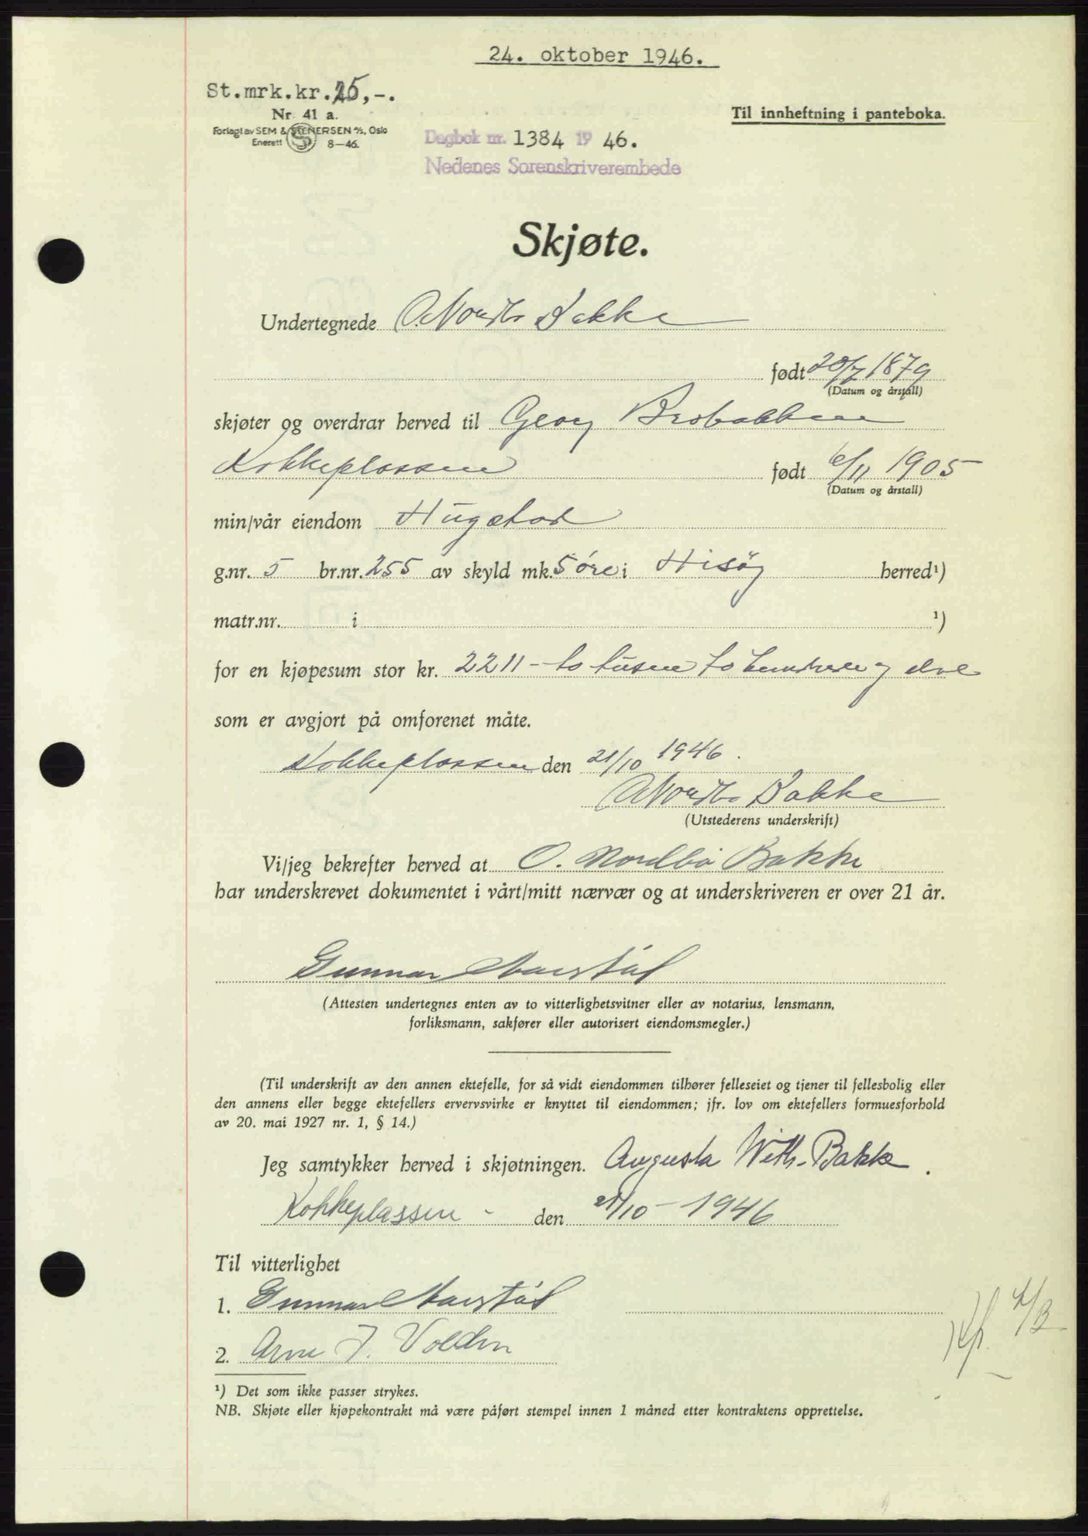 24. oktober 1946.
St.mrk.kr.25,-.
Nr. 41 a.
Til innheftning i panteboka.
Forlagt av SEM & STENERSEN A/S, Oslo
Enerett 8—46.
Dagbok nr. 1384 19 46.
Nedenes Sorenskriverembede
Skjøte.
Undertegnede O. Nordbø Bakke
født 20/7 1879
(Datum og årstall)
skjøter og overdrar herved til Georg Brobakken
Kokkeplassen født 6/11 1905
(Datum og årstall)
min/vår eiendom Hugstad
g.nr. 5 br.nr. 255 av skyld mk. 5 øre i Hisøy herred¹)
matr.nr. i ¹)
for en kjøpesum stor kr. 2211 - to tusen to hundrede og elve
som er avgjort på omforenet måte.
Kokkeplassen den 21/10 1946.
O. Nordbø Bakke
(Utstederens underskrift)
Vi/jeg bekrefter herved at O. Nordbø Bakke
har underskrevet dokumentet i vårt/mitt nærvær og at underskriveren er over 21 år.
Gunnar
(Attesten undertegnes enten av to vitterlighetsvitner eller av notarius, lensmann,
forliksmann, sakfører eller autorisert eiendomsmegler.)
(Til underskrift av den annen ektefelle, for så vidt eiendommen tilhører felleseiet og tjener til fellesbolig eller
den annens eller begge ektefellers ervervsvirke er knyttet til eiendommen; jfr. lov om ektefellers formuesforhold
av 20. mai 1927 nr. 1, § 14.)
Jeg samtykker herved i skjøtningen. Augusta With-Bakke.
Kokkeplassen - den 21/10 - 1946
Til vitterlighet
1. Gunnar
2. Arne J. Volden
¹) Det som ikke passer strykes.
NB. Skjøte eller kjøpekontrakt må være påført stempel innen 1 måned etter kontraktens opprettelse.